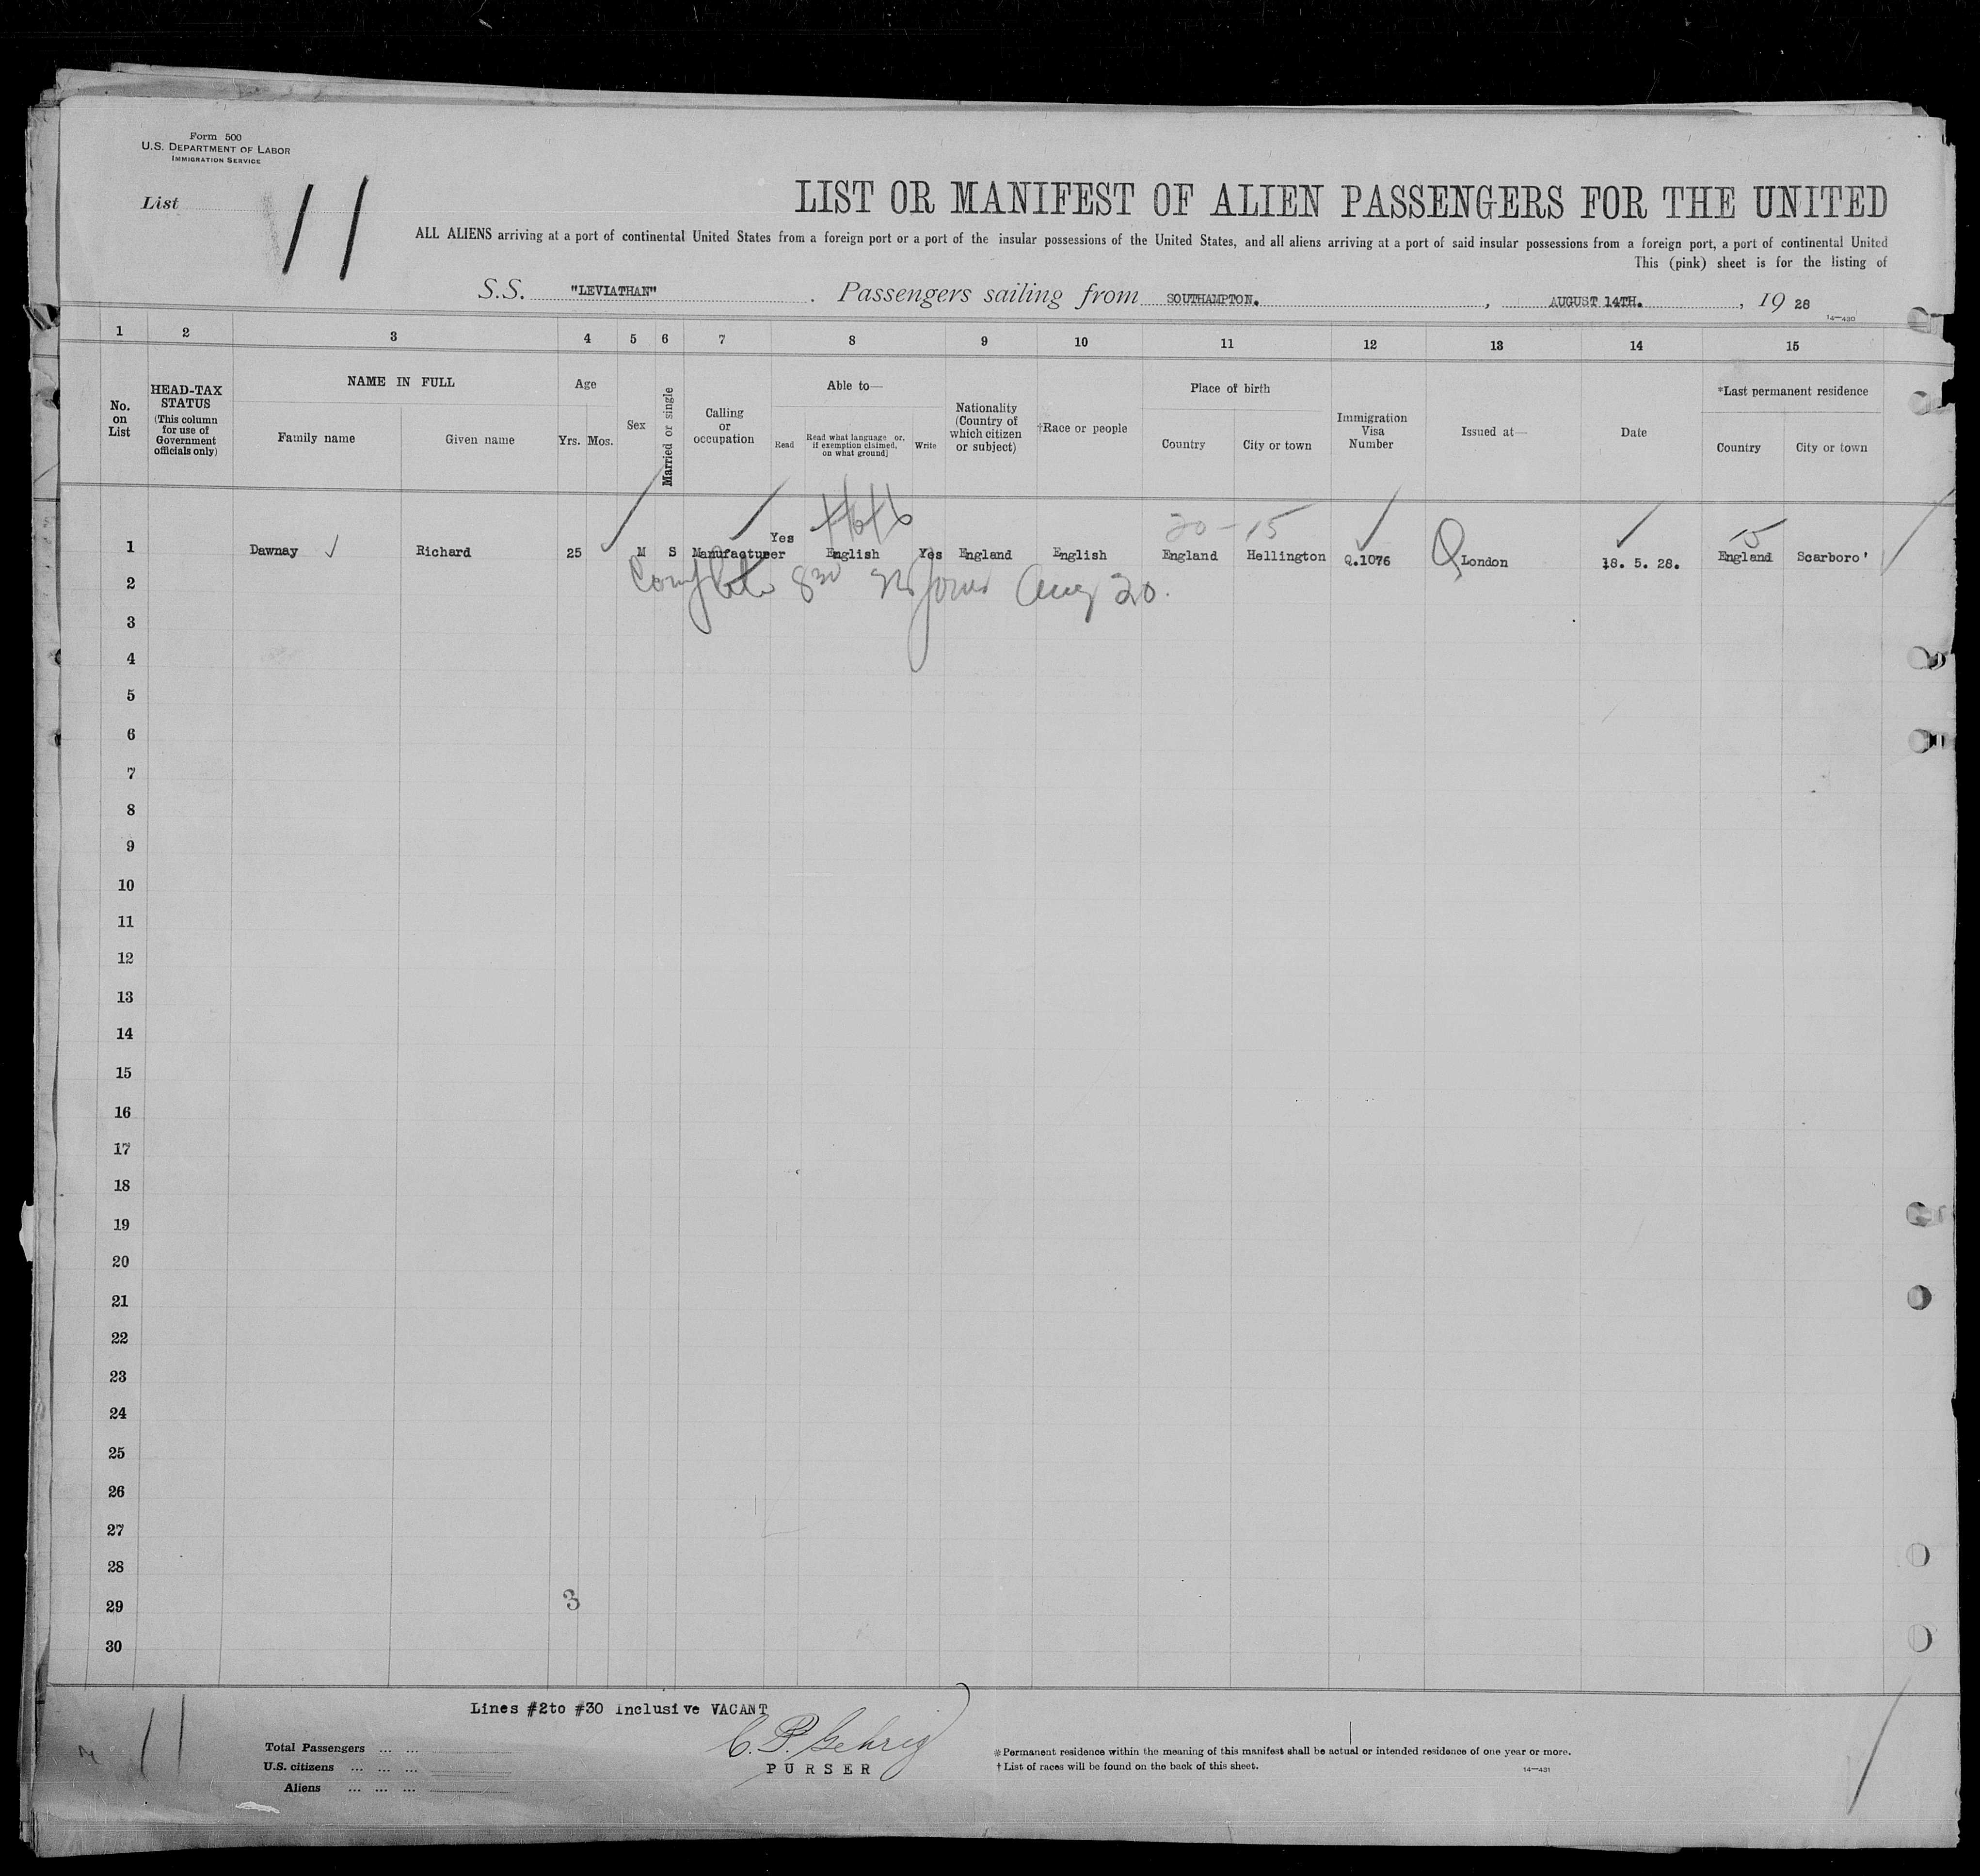 Form 500
U.S. DEPARTMENT OF LABOR
IMMIGRATION SERVICE
List 11
LIST OR MANIFEST OF ALIEN PASSENGERS FOR THE UNITED
ALL ALIENS arriving at a port of continental United States from a foreign port or a port of the insular possessions of the United States, and all aliens arriving at a port of said insular possessions from a foreign port, a port of continental United
This (pink) sheet is for the listing of
S.S. "LEVIATHAN". Passengers sailing from SOUTHAMPTON., AUGUST 14TH., 19 28
14—430
1 2 3 4 5 6 7 8 9 10 11 12 13 14 15
No. on List
HEAD-TAX STATUS (This column for use of Government officials only)
NAME IN FULL
Family name Given name
Age
Yrs. Mos.
Sex
Married or single
Calling or occupation
Able to—
Read Read what language or, if exemption claimed, on what ground] Write
Nationality (Country of which citizen or subject)
†Race or people
Place of birth
Country City or town
Immigration Visa Number
Issued at—
Date
*Last permanent residence
Country City or town
20-15 15
1 Dawnay Richard 25 M S Manufacturer Yes English Yes England English England Hellington Q.1076 Q London 18. 5. 28. England Scarboro'
2 Aug 20.
3
4
5
6
7
8
9
10
11
12
13
14
15
16
17
18
19
20
21
22
23
24
25
26
27
28
29 3
30
Lines #2to #30 Inclusive VACANT
11
C. P. Gehrig
PURSER
Total Passengers ... ...
U.S. citizens ... ... ...
Aliens ... ... ...
*Permanent residence within the meaning of this manifest shall be actual or intended residence of one year or more.
† List of races will be found on the back of this sheet.
14—431